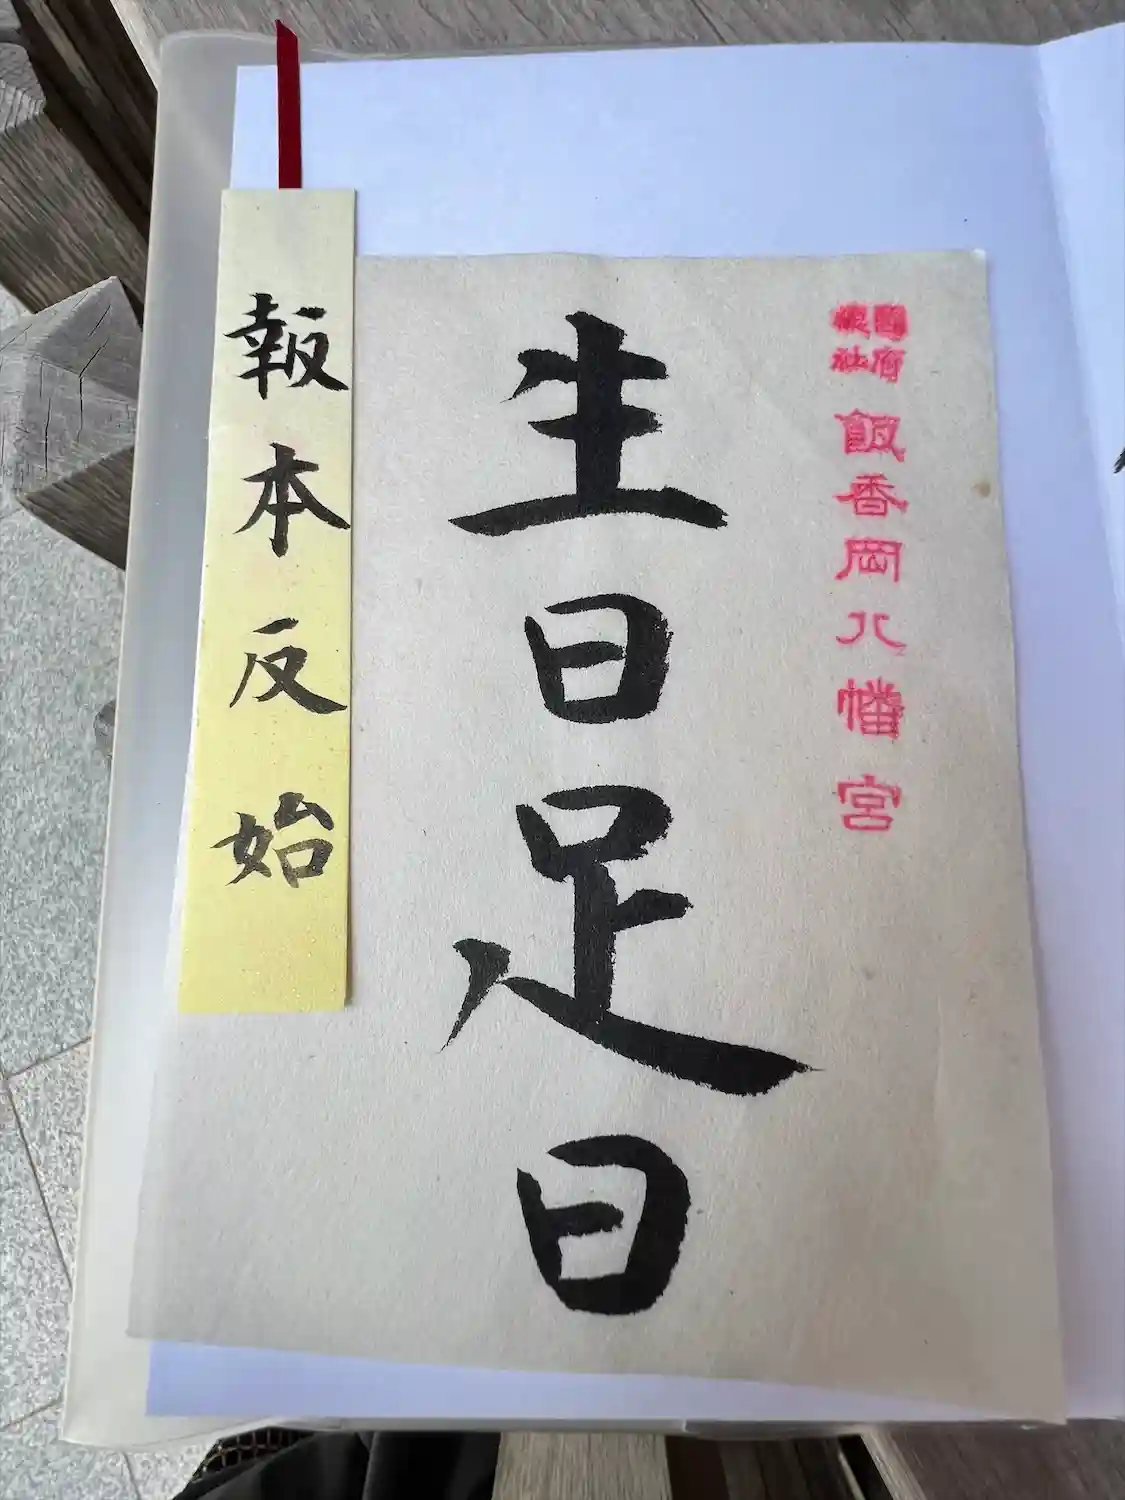 國府
總社
飯香岡八幡宮
生日足日
報本反始